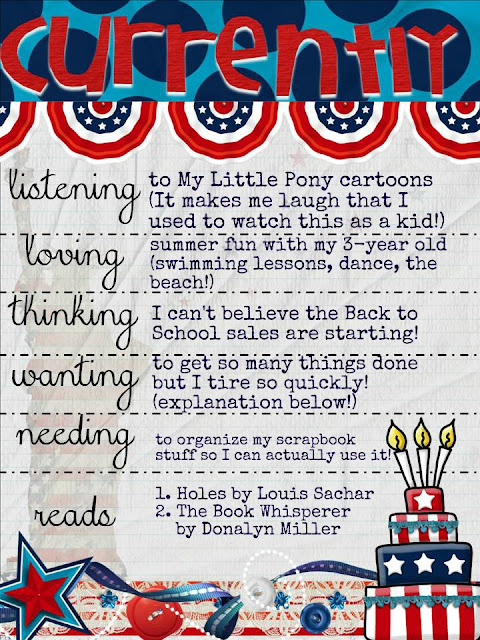 currently
listening
to My Little Pony cartoons
(It makes me laugh that I
used to watch this as a kid!)
loving
summer fun with my 3-year old
(swimming lessons, dance, the
beach!)
thinking
I can't believe the Back to
School sales are starting!
wanting
to get so many things done
but I tire so quickly!
(explanation below!)
needing
to organize my scrapbook
stuff so I can actually use it!
reads
1. Holes by Louis Sachar
2. The Book Whisperer
by Donalyn Miller